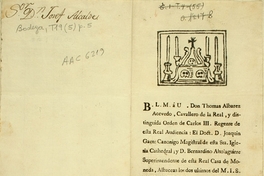 Sor. D. Josef Alcalde
Badega, T19(5) p.5
ABC 6219
B. L. M. á U, Don Thomas Albares
Acevedo, Cavallero de la Real, y distinguida Orden de Carlos III. Regente de
esta Real Audiencia: El Doct. D. Joaquin
Gaete Canonigo Magistral de esta Sta. Iglesia
Cathedral, y D. Bernardino Altolaguirre
Superintendente de esta Real Casa de Moneda, Albaceas los dos ultimos del M. I. S.